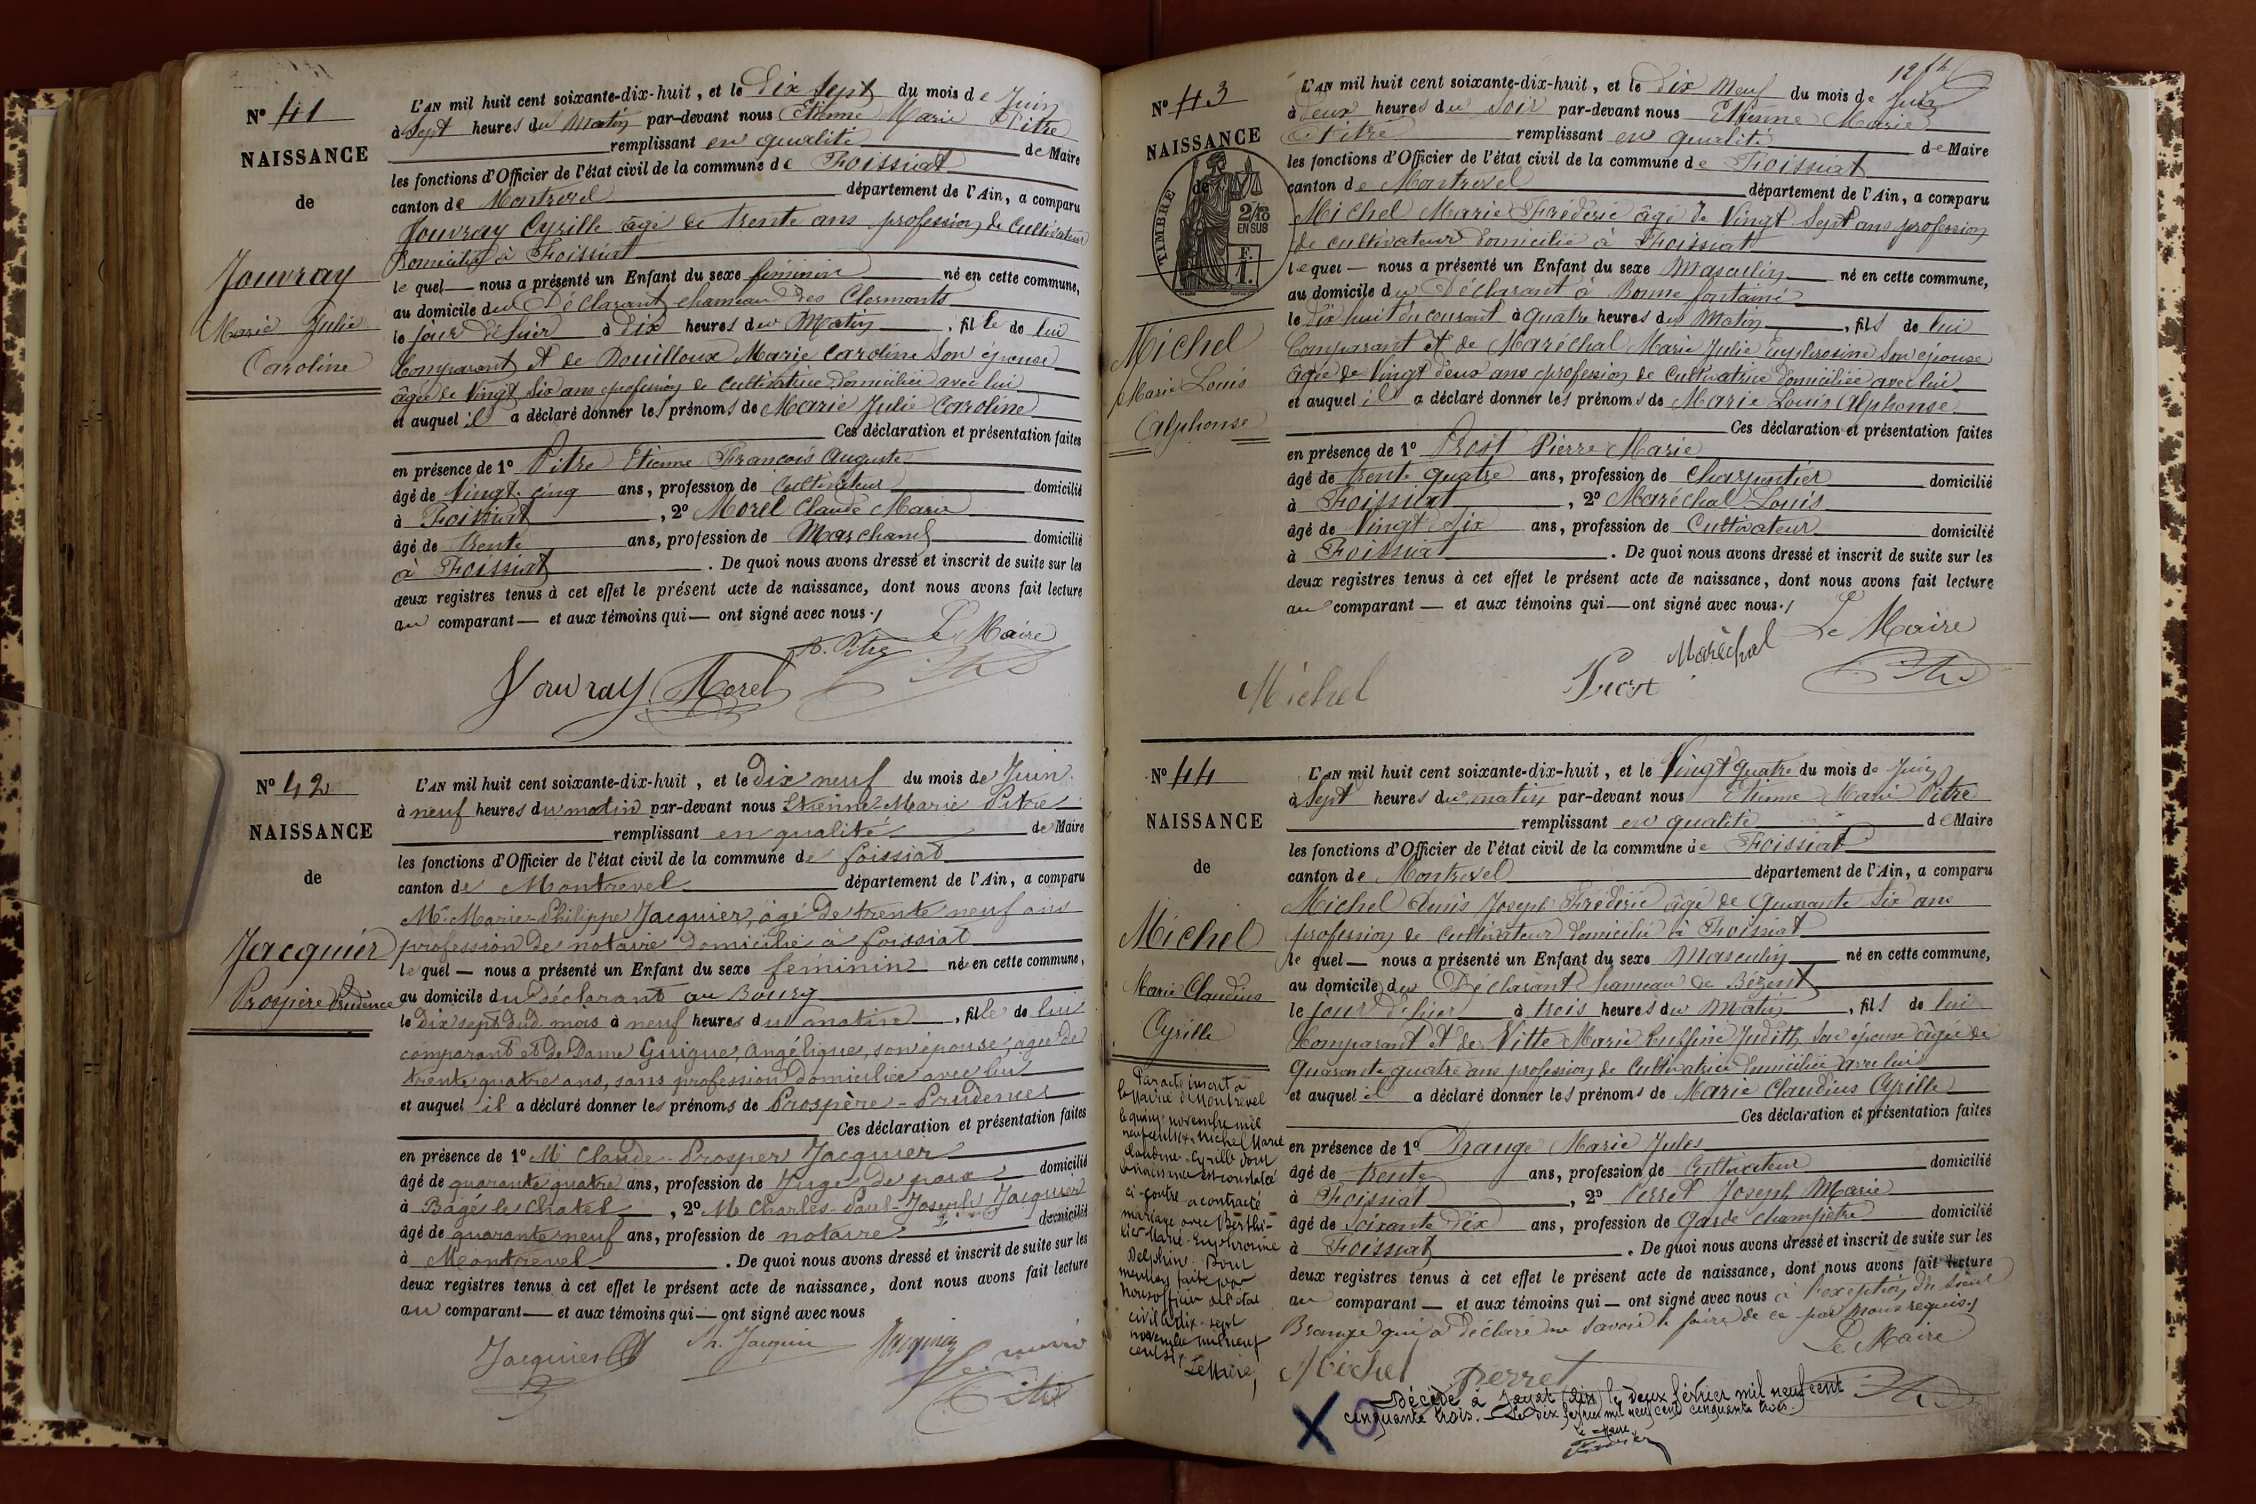 Nº 41
NAISSANCE
de
Jouvray
Marie Julie
Caroline
L'AN mil huit cent soixante-dix-huit, et le Dix Sept du mois de Juin
à Sept heures du Matin par-devant nous Etienne Marie Pitre
remplissant en qualité de Maire
les fonctions d'Officier de l'état civil de la commune de Foissiat
canton de Montrevel département de l'Ain, a comparu
Jouvray Cyrille âgé de trente ans profession de Cultivateur
Domicilié à Foissiat
le quel — nous a présenté un Enfant du sexe féminin né en cette commune,
au domicile du Déclarant hameau des Clermonts
le jour d'hier à Dix heures du Matin, fille de lui
Comparant et de Douilloux Marie Caroline Son épouse
âgée de Vingt Six ans profession de Cultivatrice Domiciliée avec lui
et auquel il a déclaré donner les prénoms de Marie Julie Caroline
Ces déclaration et présentation faites
en présence de 1º Pitre Etienne François Auguste
âgé de Vingt cinq ans, profession de Cultivateur domicilié
à Foissiat, 2º Morel Claude Marie
âgé de trente ans, profession de Marchand domicilié
à Foissiat. De quoi nous avons dressé et inscrit de suite sur les
deux registres tenus à cet effet le présent acte de naissance, dont nous avons fait lecture
au comparant — et aux témoins qui — ont signé avec nous./
Le Maire
Pitre
Jouvray Morel
Nº 42
NAISSANCE
de
Jacquier
Prospère Prudence
L'AN mil huit cent soixante-dix-huit, et le Dix neuf du mois de Juin
à neuf heures du matin par-devant nous Etienne Marie Pitre
remplissant en qualité de Maire
les fonctions d'Officier de l'état civil de la commune de Foissiat
canton de Montrevel département de l'Ain, a comparu
Me Marie-Philippe Jacquier, âgé de trente neuf ans
profession de notaire domicilié à Foissiat
le quel — nous a présenté un Enfant du sexe féminin né en cette commune,
au domicile du déclarant au Bourg
le Dix sept dud mois à neuf heures du matin, fille de lui
comparant et de Dame Guigue, Angélique, son épouse, agée de
trente quatre ans, sans profession domiciliée avec lui
et auquel il a déclaré donner les prénoms de Prospère-Prudence
Ces déclaration et présentation faites
en présence de 1º Mr Claude-Prosper Jacquier
âgé de quarante quatre ans, profession de Juge de paix domicilié
à Bagé le Chatel, 2º M Charles-Paul-Joseph Jacquier
âgé de quarante neuf ans, profession de notaire domicilié
à Montrevel. De quoi nous avons dressé et inscrit de suite sur les
deux registres tenus à cet effet le présent acte de naissance, dont nous avons fait lecture
au comparant — et aux témoins qui — ont signé avec nous
Jacquier Ph. Jacquier Jacquier
Le maire
Nº 43
NAISSANCE
de
TIMBRE
2/10
EN SUS
Michel
Marie Louis
Alphonse
L'AN mil huit cent soixante-dix-huit, et le Dix Neuf du mois de Juin
à Deux heures du Soir par-devant nous Etienne Marie
Pitre remplissant en qualité de Maire
les fonctions d'Officier de l'état civil de la commune de Foissiat
canton de Montrevel département de l'Ain, a comparu
Michel Marie Frédéric âgé de Vingt Sept ans profession
de cultivateur domicilié à Foissiat
le quel — nous a présenté un Enfant du sexe Masculin né en cette commune,
au domicile du Déclarant à Bonne fontaine
le Dix huit du courant à quatre heures du Matin, fils de lui
Comparant et de Maréchal Marie Julie Euphrosine Son épouse
âgée de Vingt deux ans profession de Cultivatrice domiciliée avec lui
et auquel il a déclaré donner les prénoms de Marie Louis Alphonse
Ces déclaration et présentation faites
en présence de 1º Prost Pierre Marie
âgé de trente quatre ans, profession de Charpentier domicilié
à Foissiat, 2º Maréchal Louis
âgé de Vingt Six ans, profession de Cultivateur domicilié
à Foissiat. De quoi nous avons dressé et inscrit de suite sur les
deux registres tenus à cet effet le présent acte de naissance, dont nous avons fait lecture
au comparant — et aux témoins qui — ont signé avec nous./
Le Maire
Michel Prost Maréchal
Nº 44
NAISSANCE
de
Michel
Marie Claudius
Cyrille
Par acte inscrit à
la Mairie de Montrevel
le quinze novembre mil
neuf cent six, Michel Marie
Claudius-Cyrille dont
la naissance est constatée
ci-contre a contracté
mariage avec Berthi-
Marie-Euphrosine
Delphine. Dont
mention faite par
nous officier de l'état
civil le dix-sept
novembre mil neuf
cent six
Le Maire,
L'AN mil huit cent soixante-dix-huit, et le Vingt quatre du mois de Juin
à Sept heures du matin par-devant nous Etienne Marie Pitre
remplissant en qualité de Maire
les fonctions d'Officier de l'état civil de la commune de Foissiat
canton de Montrevel département de l'Ain, a comparu
Michel Denis Joseph Frédéric âgé de quarante Six ans
profession de Cultivateur domicilié à Foissiat
le quel — nous a présenté un Enfant du sexe Masculin né en cette commune,
au domicile du Déclarant hameau de Bézent
le jour d'hier à trois heures du Matin, fils de lui
Comparant et de Vitte Marie Judith son épouse âgée de
quarante quatre ans profession de Cultivatrice domiciliée avec lui
et auquel il a déclaré donner les prénoms de Marie Claudius Cyrille
Ces déclaration et présentation faites
en présence de 1º Brange Marie Jules
âgé de trente ans, profession de Cultivateur domicilié
à Foissiat, 2º Perret Joseph Marie
âgé de Soixante Dix ans, profession de Garde Champêtre domicilié
à Foissiat. De quoi nous avons dressé et inscrit de suite sur les
deux registres tenus à cet effet le présent acte de naissance, dont nous avons fait lecture
au comparant — et aux témoins qui — ont signé avec nous à l'exception du Sieur
Brange qui a déclaré ne savoir le faire de ce par nous requis./
Le Maire
Michel Perret
Décédé à Jayat (Ain) le deux février mil neuf cent
cinquante trois. — Le dix février mil neuf cent cinquante trois.
Le Maire